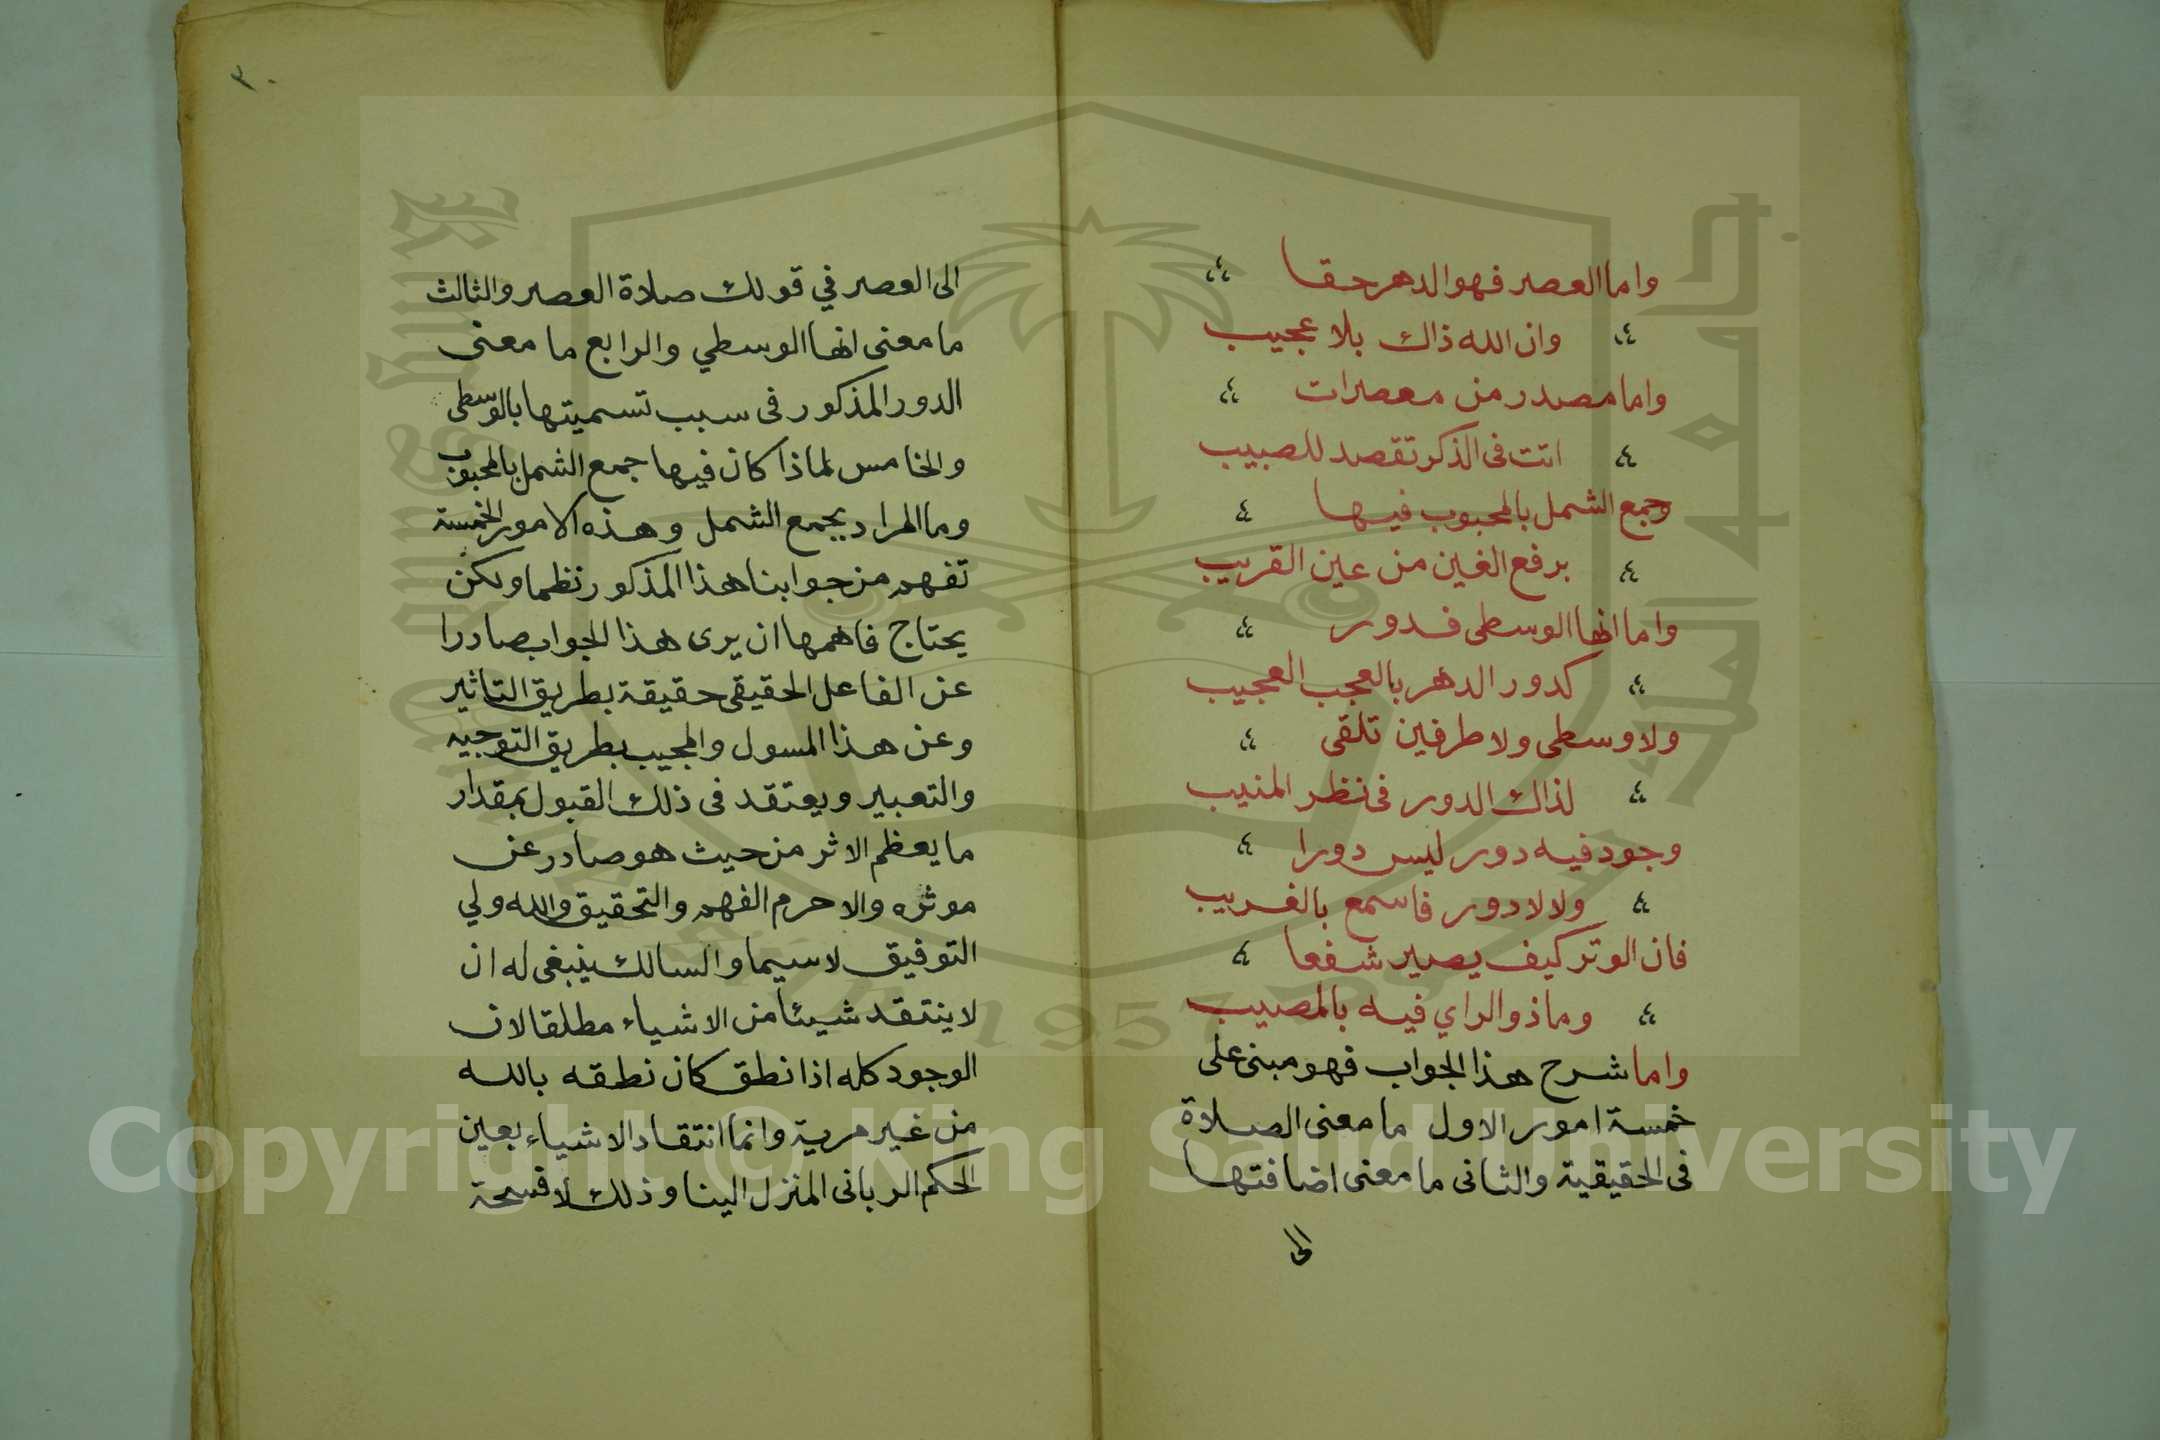 واما العصر فهو الدهر حقا
وان الله ذاك بلا عجيب
واما مصدر من معصرات
اتت في الذكر تقصد للصبيب
وجمع الشمل بالمحبوب فيها
برفع الغين من عين القريب
واما انها الوسطى فدور
كدور الدهر بالعجب العجيب
ولا وسطى ولا طرفين تلقى
لذاك الدور في نظر المنيب
وجود فيه دور ليس دورا
ولا لا دور فاسمع بالغريب
فان الوتر كيف يصير شفعا
وماذو الراي فيه بالمصيب
واما شرح هذا الجواب فهو مبني على
خمسة امور الاول ما معنى الصلاة
في الحقيقية والثاني ما معنى اضافتها
الى
٣٠
الى العصر في قولك صلاة العصر والثالث
ما معنى انها الوسطي والرابع ما معنى
الدور المذكور في سبب تسميتها بالوسطى
والخامس لماذا كان فيها جمع الشمل بالمحبوب
وما المراد بجمع الشمل وهذه الامور الخمسة
تفهم من جوابنا هذا المذكور نظما ولكن
يحتاج فاهمها ان يرى هذا الجواب صادرا
عن الفاعل الحقيقي حقيقة بطريق التاثير
وعن هذا المسول والمجيب بطريق التوجيه
والتعبير ويعتقد في ذلك القبول بمقدار
ما يعظم الاثر من حيث هو صادر عن
موثره والا حرم الفهم والتحقيق والله ولي
التوفيق لاسيما والسالك ينبغي له ان
لا ينتقد شيئا من الاشياء مطلقا لان
الوجود كله اذا نطق كان نطقه بالله
من غير مرية وانما انتقاد الاشياء بعين
الحكم الرباني المنزل الينا وذلك لا فسحة
جامعة الملك سعود
King Saud University
1957
Copyright © King Saud University